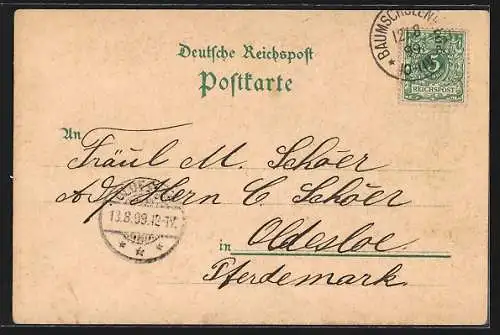 BAUMSCHULENW
12/8
99
5
REICHSPOST
Deutsche Reichspost
Postkarte
An
Fräul M. Schöer
Adr Herrn C Schöer
13.8.99.12-1V.
in Oldesloe
Pferdemarkt.